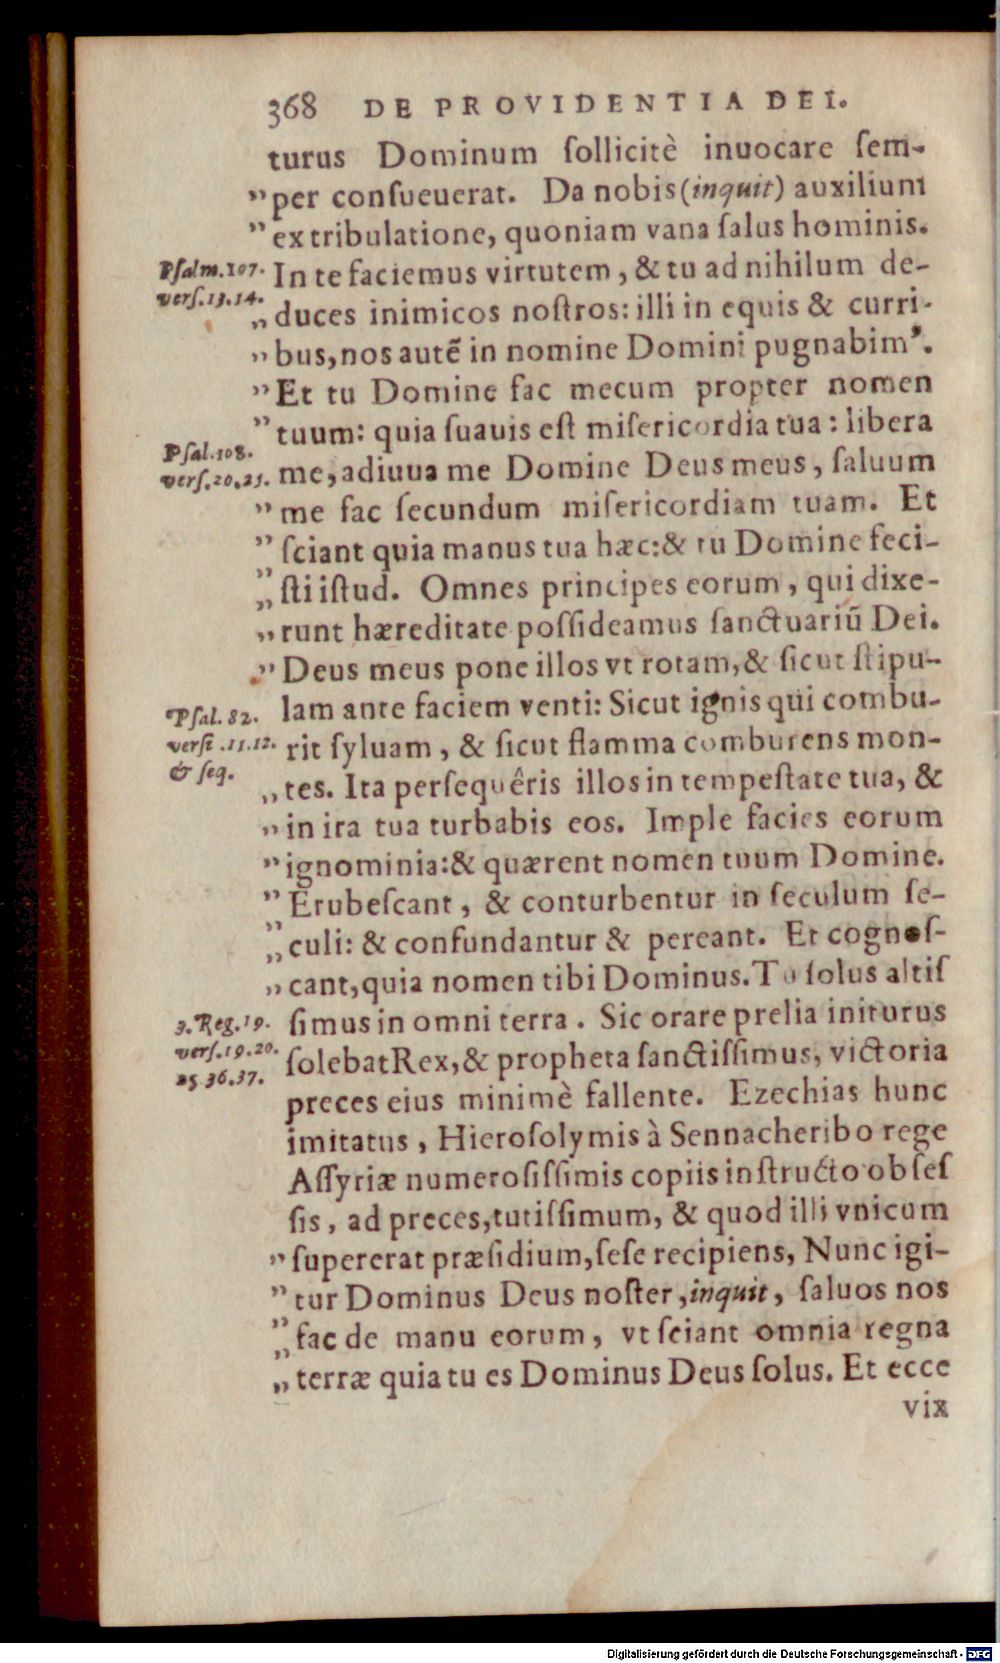 368 DE PROVIDENTIA DEI.
turus Dominum ſollicitè inuocare ſem-
„ per conſueuerat. Da nobis (inquit) auxilium
„ ex tribulatione, quoniam vana ſalus hominis.
Pſalm.107. In te faciemus virtutem, & tu ad nihilum de-
verſ.13.14.
„ duces inimicos noſtros: illi in equis & curri-
„ bus, nos autē in nomine Domini pugnabimꝰ.
„ Et tu Domine fac mecum propter nomen
„ tuum: quia ſuauis eſt miſericordia tua: libera
Pſal.108.
verſ.20.25. me, adiuua me Domine Deus meus, ſaluum
„ me fac ſecundum miſericordiam tuam. Et
„ ſciant quia manus tua hæc: & tu Domine feci-
„ ſti iſtud. Omnes principes eorum, qui dixe-
„ runt hæreditate poſſideamus ſanctuariū Dei.
„ Deus meus pone illos vt rotam, & ſicut ſtipu-
Pſal. 82. lam ante faciem venti: Sicut ignis qui combu-
verſi .11.12. rit ſyluam, & ſicut flamma comburens mon-
& ſeq.
„ tes. Ita perſequêris illos in tempeſtate tua, &
„ in ira tua turbabis eos. Imple facies eorum
„ ignominia: & quærent nomen tuum Domine.
„ Erubeſcant, & conturbentur in ſeculum ſe-
„ culi: & confundantur & pereant. Et cognoſ-
„ cant, quia nomen tibi Dominus. Tu ſolus altiſ
3. Reg.19. ſimus in omni terra. Sic orare prelia initurus
verſ.19.20. ſolebat Rex, & propheta ſanctiſſimus, victoria
25 36.37.
preces eius minimè fallente. Ezechias hunc
imitatus, Hieroſolymis à Sennacheribo rege
Aſſyriæ numeroſiſſimis copiis inſtructo obſeſ
ſis, ad preces, tutiſſimum, & quod illi vnicum
„ ſupererat præſidium, ſeſe recipiens, Nunc igi-
„ tur Dominus Deus noſter, inquit, ſaluos nos
„ fac de manu eorum, vt ſciant omnia regna
„ terræ quia tu es Dominus Deus ſolus. Et ecce
vix
Digitalisierung gefördert durch die Deutsche Forschungsgemeinschaft - DFG